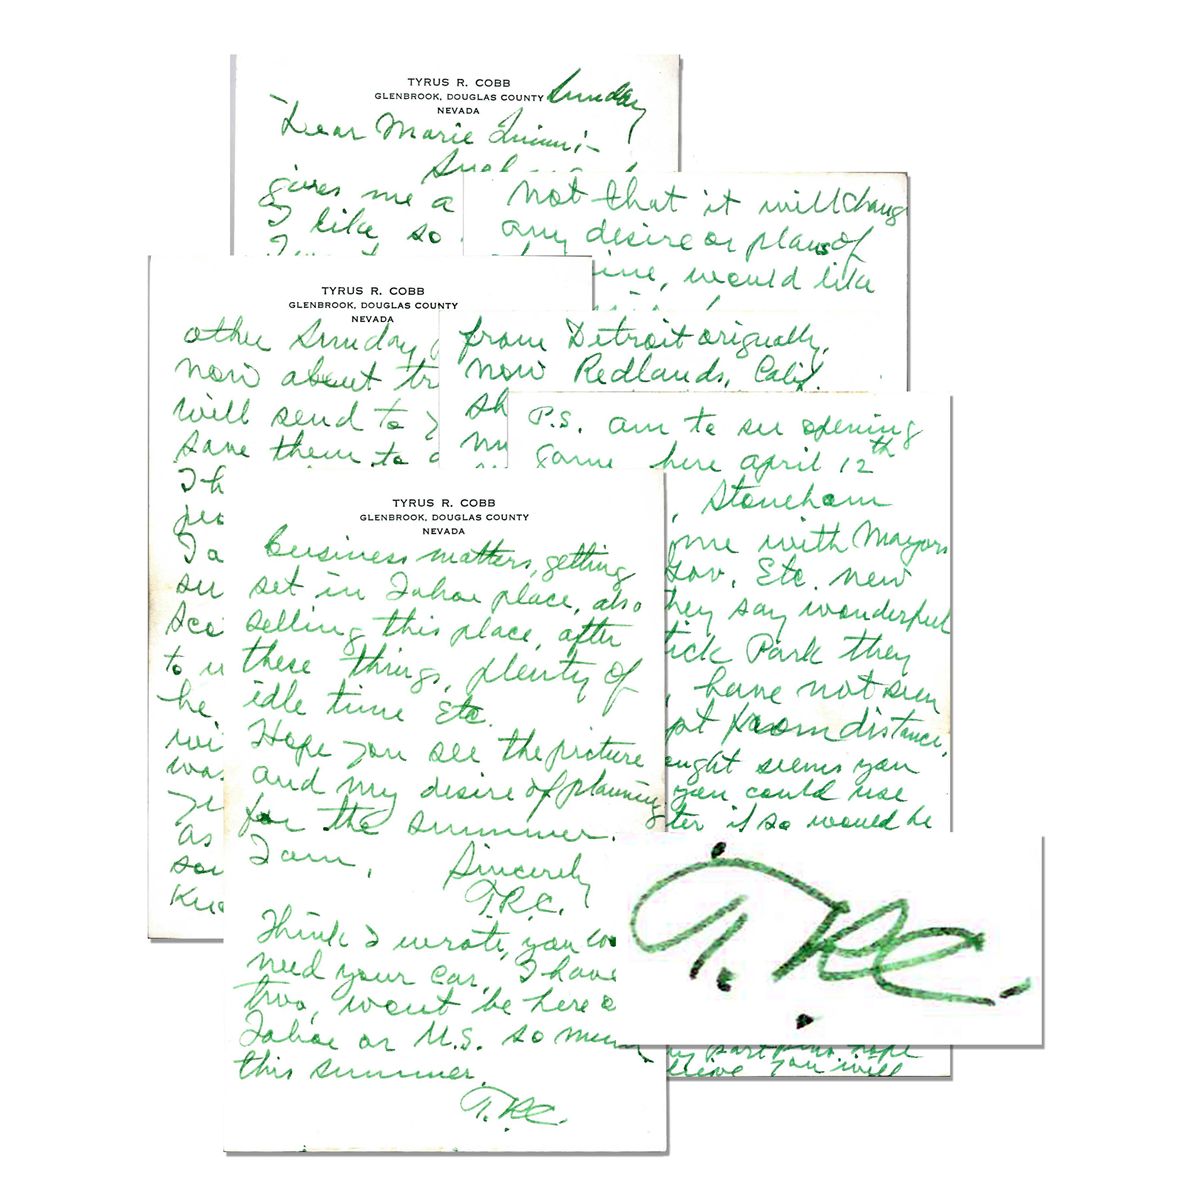 TYRUS R. COBB
GLENBROOK, DOUGLAS COUNTY
NEVADA
Sunday
Dear Marie
gives me a
I like so
not that it will change
any desire or plans of
would like
TYRUS R. COBB
GLENBROOK, DOUGLAS COUNTY
NEVADA
other Sunday
now about
will send to
save them to
I h
to
he
wi
was
as
from Detroit originally,
now Redlands, Calif.
sh
P.S. am to see opening
game here april 12th
, Stoneham
me with Mayors
Gov. Etc. new
they say wonderful
tick Park they
, have not seen
pt from distance,
ought seems you
you could use
ter if so would be
hope
lieve you will
TYRUS R. COBB
GLENBROOK, DOUGLAS COUNTY
NEVADA
business matters, getting
set in Tahoe place, also
selling this place, after
these things, plenty of
idle time Etc.
Hope you see the picture
and my desire of planning
for the summer.
I am,
Sincerely
T.R.C.
Think I wrote, you
need your car, I have
two, wont be here
Tahoe or U.S. so
this summer.
T.R.C.
T.R.C.